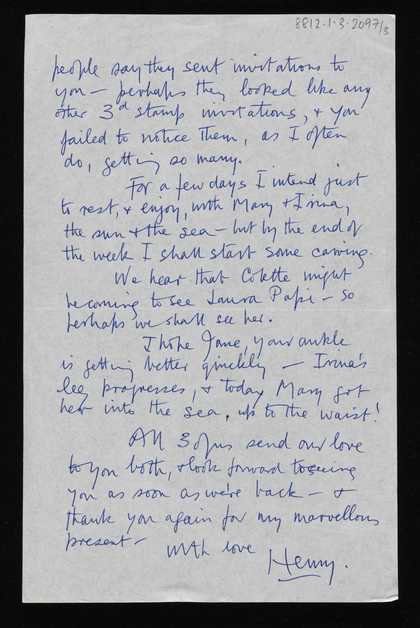 8812.1.3.2097/3
people say they sent invitations to
you — perhaps they looked like any
other 3d stamp invitations, & you
failed to notice them, as I often
do, getting so many.
For a few days I intend just
to rest, & enjoy, with Mary & Irina,
the sun & the sea — but by the end of
the week I shall start some carving.
We hear that Colette might
be coming to see Laura Papi — so
perhaps we shall see her.
I hope Jane, your ankle
is getting better quickly — Irina's
leg progresses, & today Mary got
her into the sea, up to the waist!
All 3 of us send our love
to you both, & look forward to seeing
you as soon as we're back — &
thank you again for my marvellous
present —
with love
Henry.